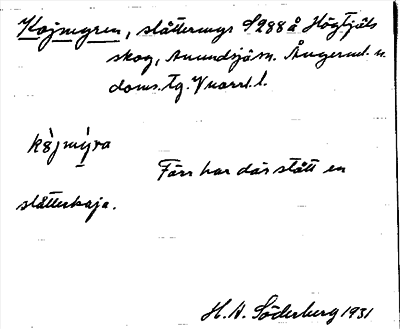 Kojmyren, slåttermyr S 288 å Högtjäls
skog, Anundsjö sn. Ångerml. n.
doms. tg. Vnorrl. l.
kòjmýra
Förr har där stått en
slåtterkoja.
H. A. Söderberg 1931